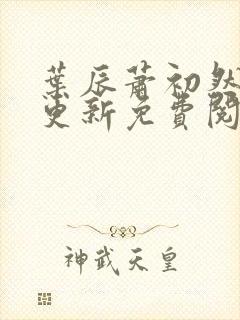 葉辰蕭初然
更新免費閱
神武天皇